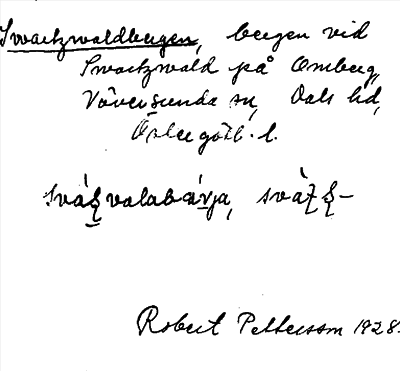 Swartzwaldbergen, bergen vid
Swartzwald på Omberg,
Väversunda sn, Dals hd,
Östergötl. l.
svàʃ̱valabárja, svàʃ-
Robert Pettersson 1928.